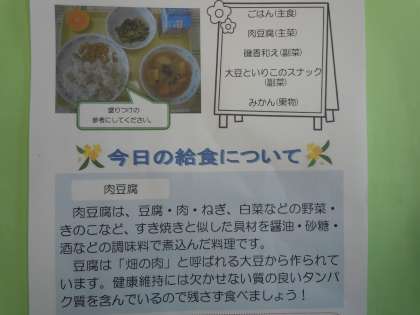 ごはん(主食)
肉豆腐(主菜)
磯香和え(副菜)
大豆といりこのスナック
(副菜)
みかん(果物)
盛りつけの
参考にしてください。
今日の給食について
肉豆腐
肉豆腐は、豆腐・肉・ねぎ、白菜などの野菜・
きのこなど、すき焼きと似した具材を醤油・砂糖・
酒などの調味料で煮込んだ料理です。
豆腐は「畑の肉」と呼ばれる大豆から作られて
います。健康維持には欠かせない質の良いタンパ
ク質を含んでいるので残さず食べましょう！